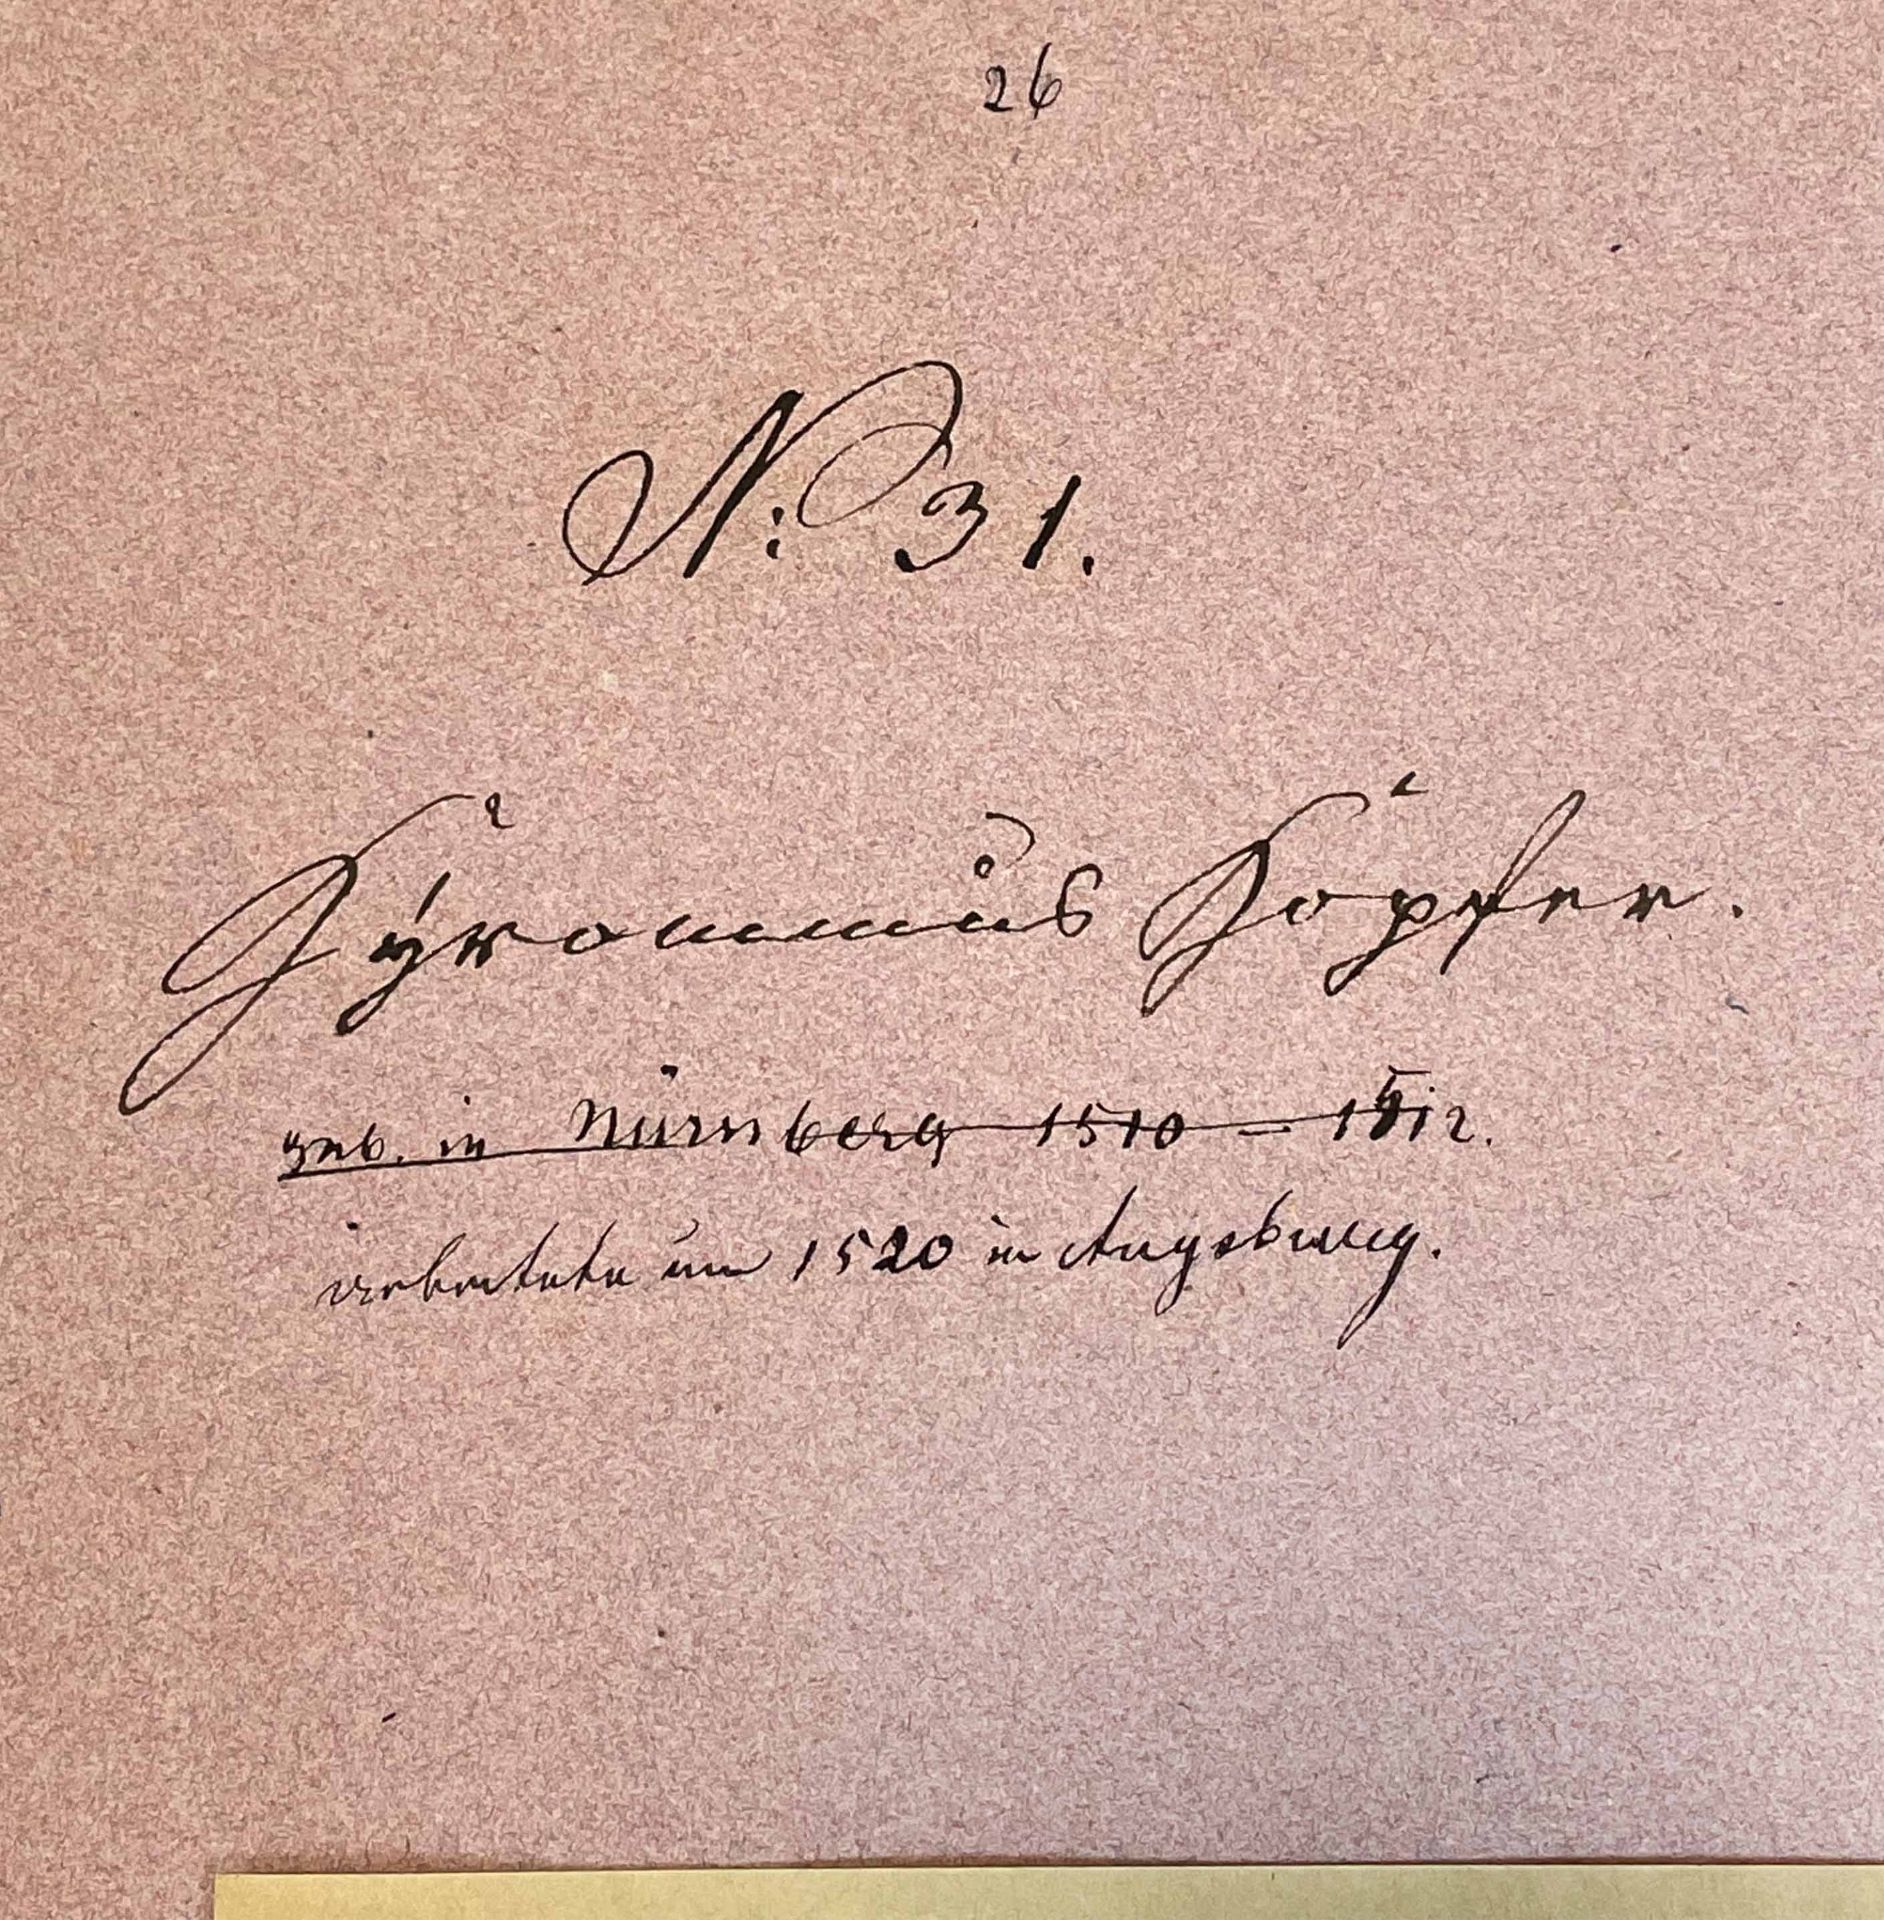 26
N: 31.
Hyronimus Hopfer.
geb. in Nürnberg 1510 – 1512.
arbeitete um 1520 in Augsburg.